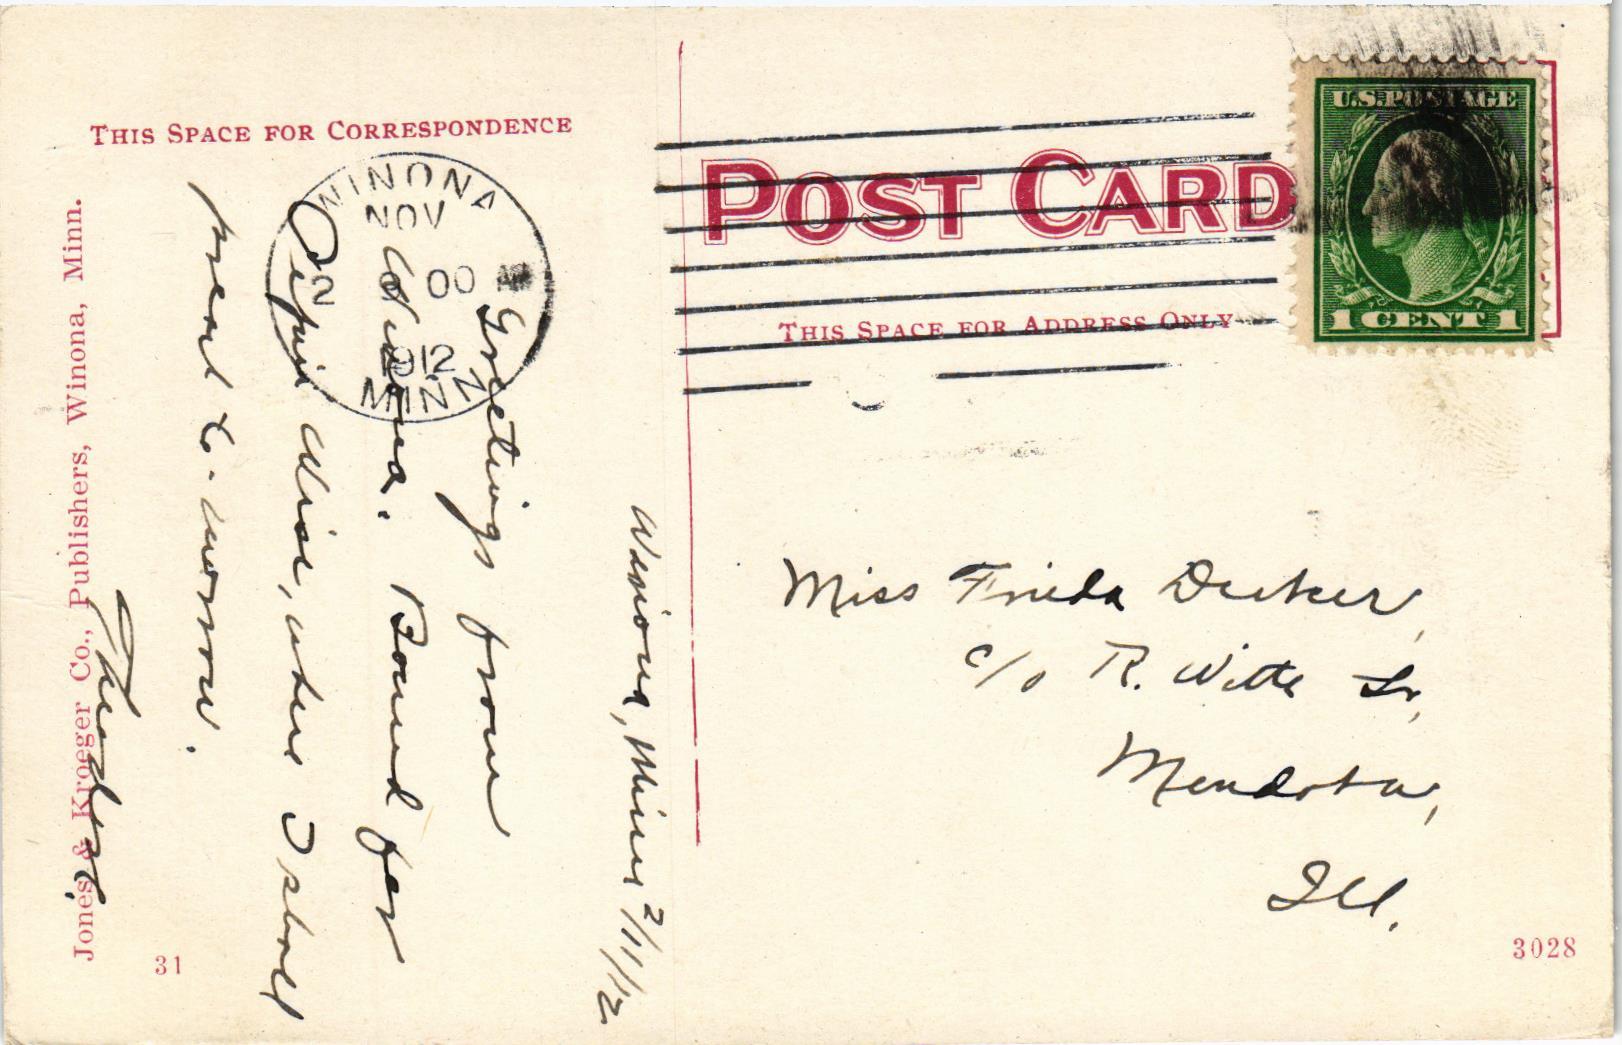 THIS SPACE FOR CORRESPONDENCE
POST CARD
THIS SPACE FOR ADDRESS ONLY
U.S. POSTAGE
1 CENT 1
WINONA
NOV
2
00
1912
MINN
Winona, Minn 2/11/12.
Greetings from
Winona. Bound for
Pepin Wisc, where I shall
preach to-morrow.
Theodore
Miss Frieda Decker,
c/o R. Witte Sr,
Mendota,
Ill.
Jones & Kroeger Co., Publishers, Winona, Minn.
31
3028